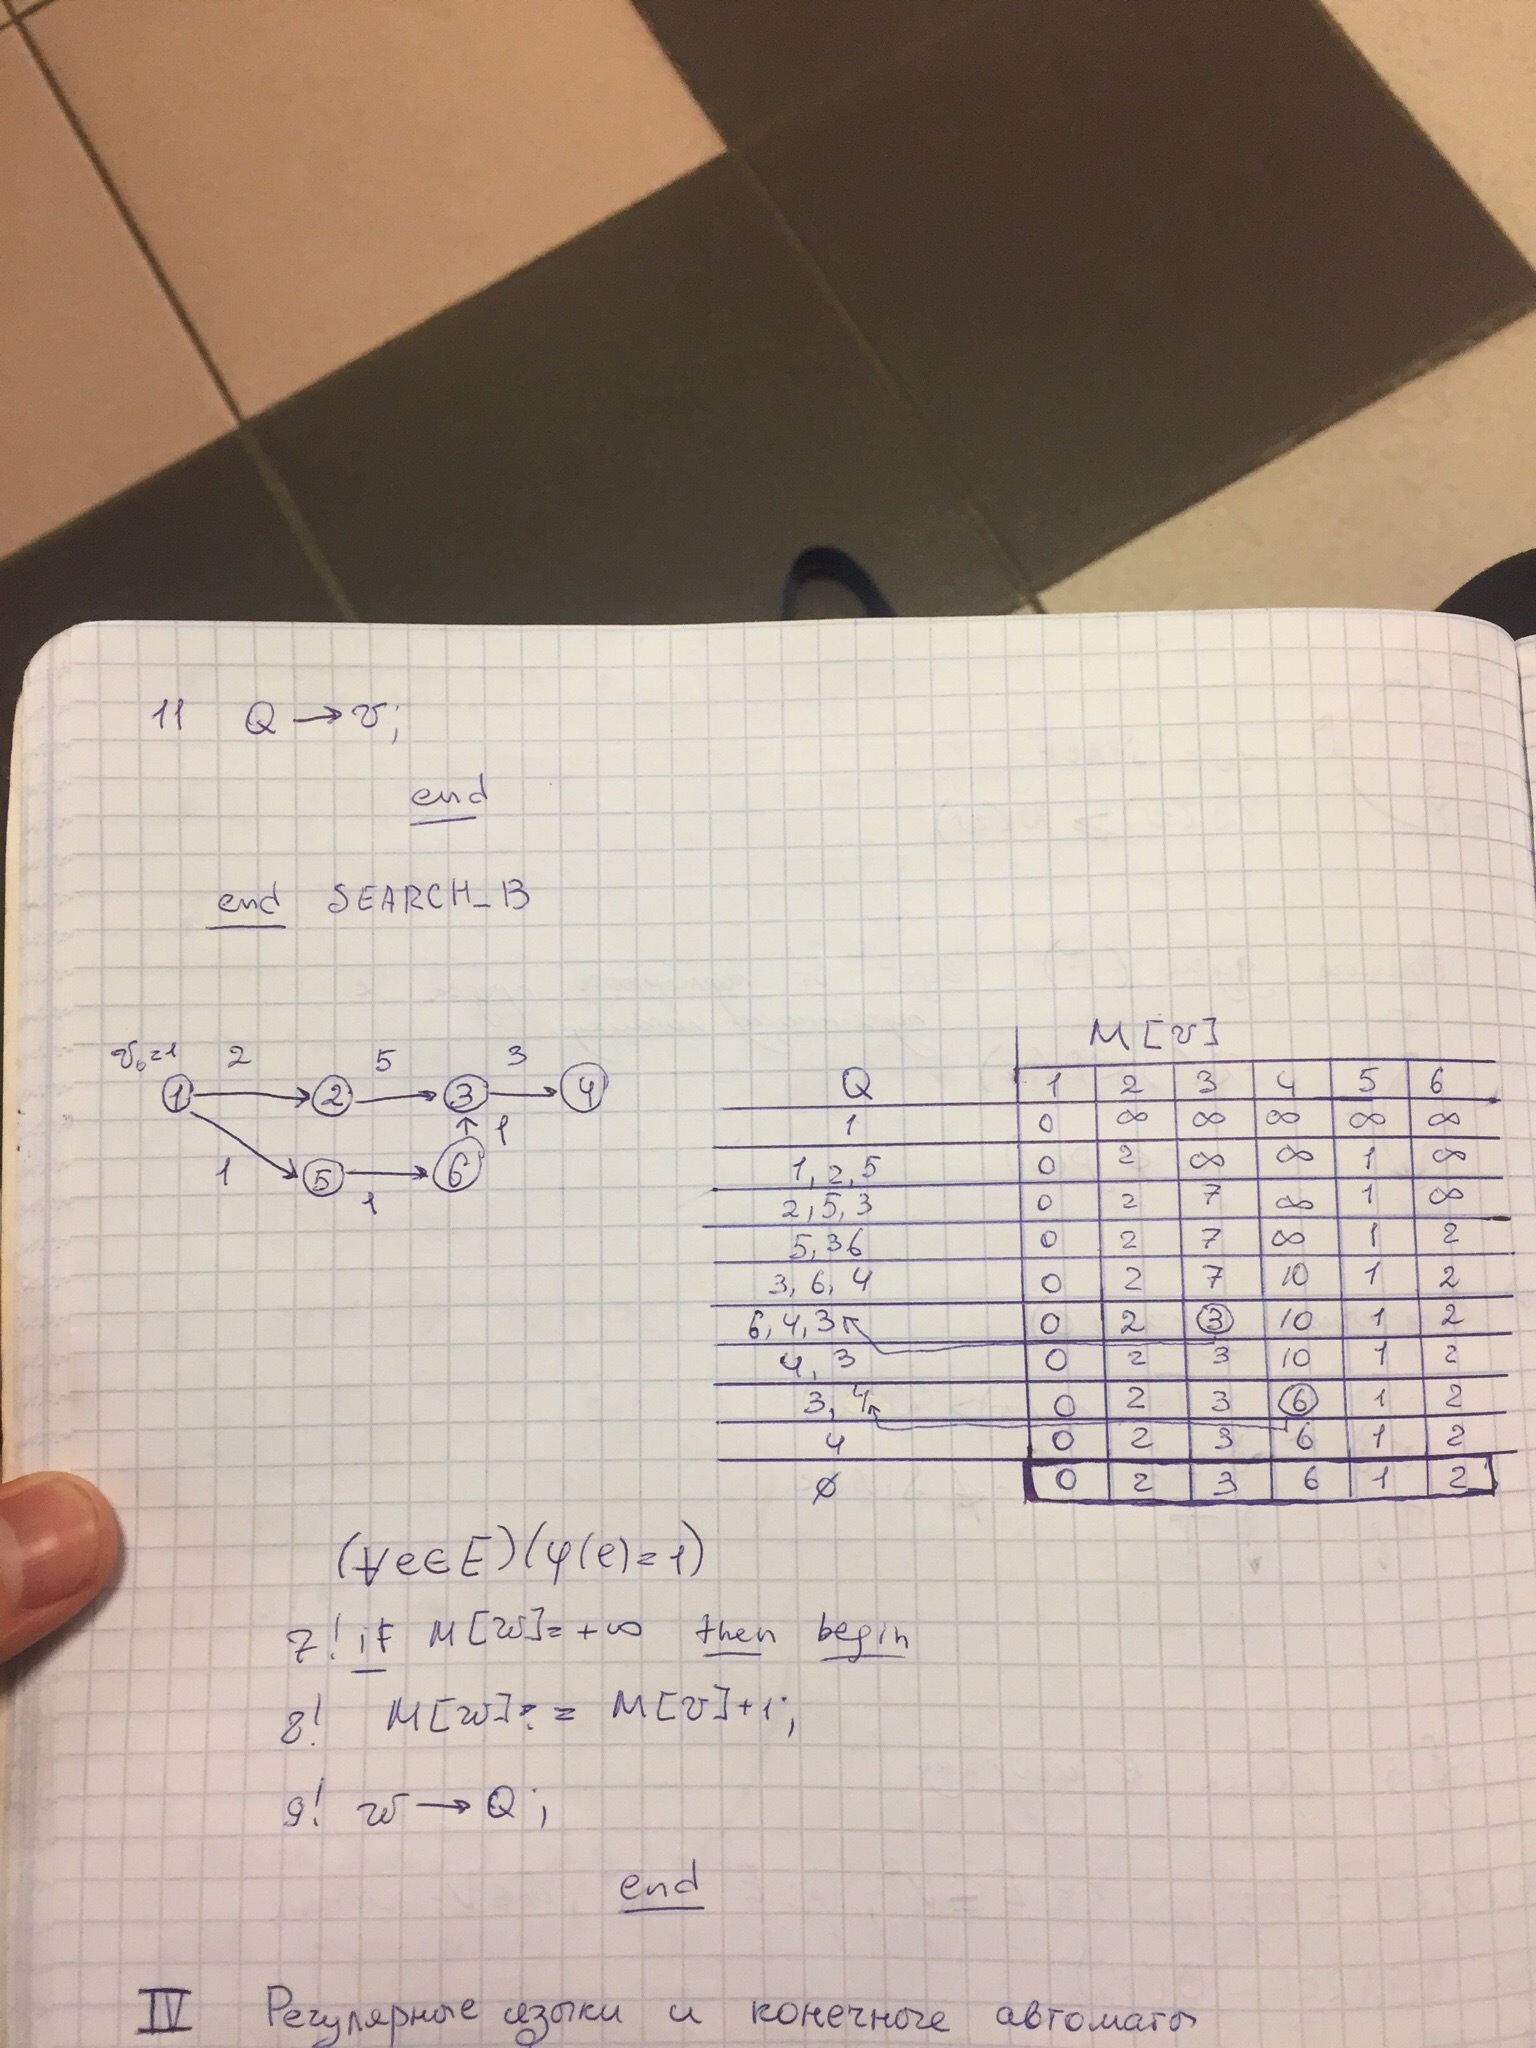 11 Q → v;
end
end SEARCH_B
v₀=1 2 5 3
1 2 3 4
1
1 5 6
1
M[v]
Q 1 2 3 4 5 6
1 0 ∞ ∞ ∞ ∞ ∞
1, 2, 5 0 2 ∞ ∞ 1 ∞
2, 5, 3 0 2 7 ∞ 1 ∞
5, 3 6 0 2 7 ∞ 1 2
3, 6, 4 0 2 7 10 1 2
6, 4, 3 0 2 3 10 1 2
4, 3 0 2 3 10 1 2
3, 4 0 2 3 6 1 2
4 0 2 3 6 1 2
∅ 0 2 3 6 1 2
(∀e∈E)(φ(e)=1)
7! if M[w]=+∞ then begin
8! M[w]:= M[v]+1;
9! w → Q;
end
IV Регулярные языки и конечные автоматы